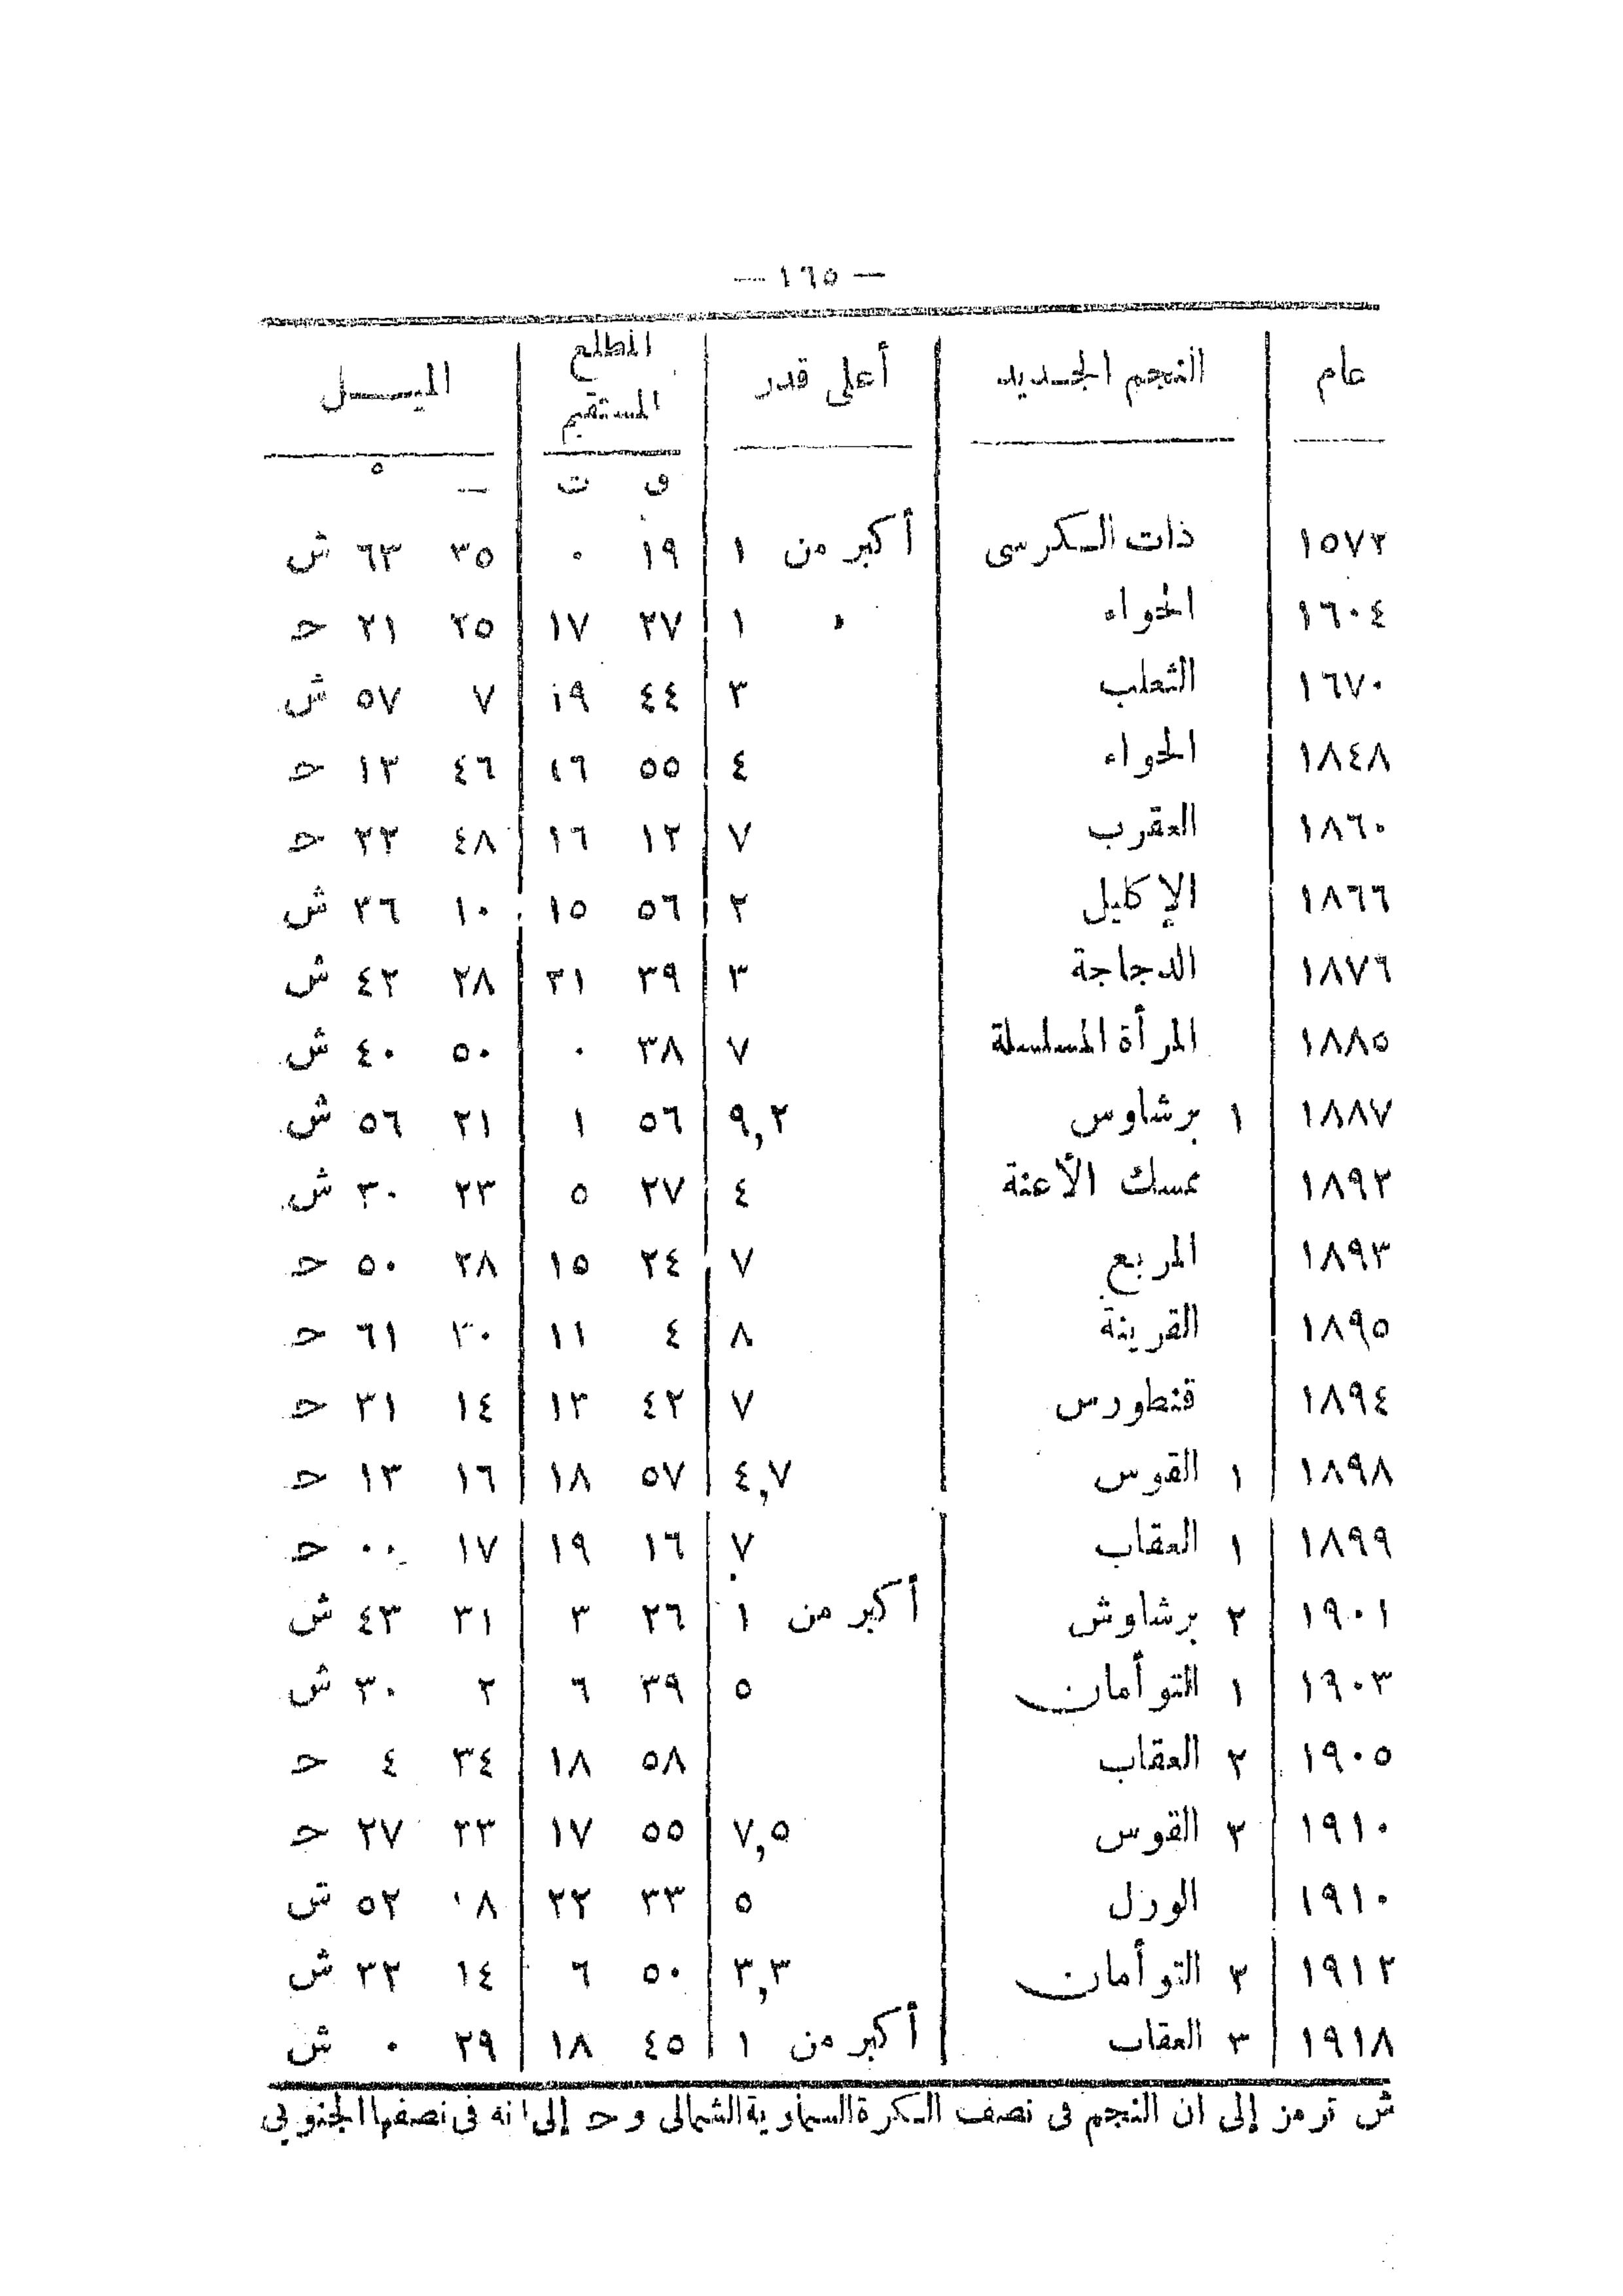 — ١٦٥ —
عام النجم الجديد أعلى قدر المطلع المستقيم الميل
ق ت – °
١٥٧٢ ذات الكرسى أكبر من ١ ١٩ ٠ ٣٥ ٦٣ ش
١٦٠٤ الحواء » ١ ٢٧ ١٧ ٢٥ ٢١ حـ
١٦٧٠ الثعلب ٣ ٤٤ ١٩ ٧ ٥٧ ش
١٨٤٨ الحواء ٤ ٥٥ ١٦ ٤٦ ١٣ حـ
١٨٦٠ العقرب ٧ ١٢ ١٦ ٤٨ ٢٢ حـ
١٨٦٦ الإكليل ٢ ٥٦ ١٥ ١٠ ٢٦ ش
١٨٧٦ الدجاجة ٣ ٣٩ ٢١ ٢٨ ٤٢ ش
١٨٨٥ المرأة المسلسلة ٧ ٣٨ ٠ ٥٠ ٤٠ ش
١٨٨٧ ١ برشاوس ٩,٢ ٥٦ ١ ٢١ ٥٦ ش
١٨٩٢ ممسك الأعنة ٤ ٢٧ ٥ ٢٣ ٣٠ ش
١٨٩٣ المربع ٧ ٢٤ ١٥ ٢٨ ٥٠ حـ
١٨٩٥ القرينة ٨ ٤ ١١ ٣٠ ٦١ حـ
١٨٩٤ قنطورس ٧ ٤٢ ١٣ ١٤ ٣١ حـ
١٨٩٨ ١ القوس ٤,٧ ٥٧ ١٨ ١٦ ١٣ حـ
١٨٩٩ ١ العقاب ٧ ١٦ ١٩ ١٧ ٠٠ حـ
١٩٠١ ٢ برشاوش أكبر من ١ ٢٦ ٣ ٣١ ٤٣ ش
١٩٠٣ ١ التوأمان ٥ ٣٩ ٦ ٢ ٣٠ ش
١٩٠٥ ٢ العقاب ٥٨ ١٨ ٣٤ ٤ حـ
١٩١٠ ٢ القوس ٧,٥ ٥٥ ١٧ ٢٣ ٢٧ حـ
١٩١٠ الورل ٥ ٣٣ ٢٢ ٨ ٥٢ ش
١٩١٢ ٢ التوأمان ٣,٣ ٥٠ ٦ ١٤ ٣٢ ش
١٩١٨ ٣ العقاب أكبر من ١ ٤٥ ١٨ ٢٩ ٠ ش
ش ترمز إلى ان النجم فى نصف الكرة السماوية الشمالى و حـ إلى انه فى نصفها الجنوبى